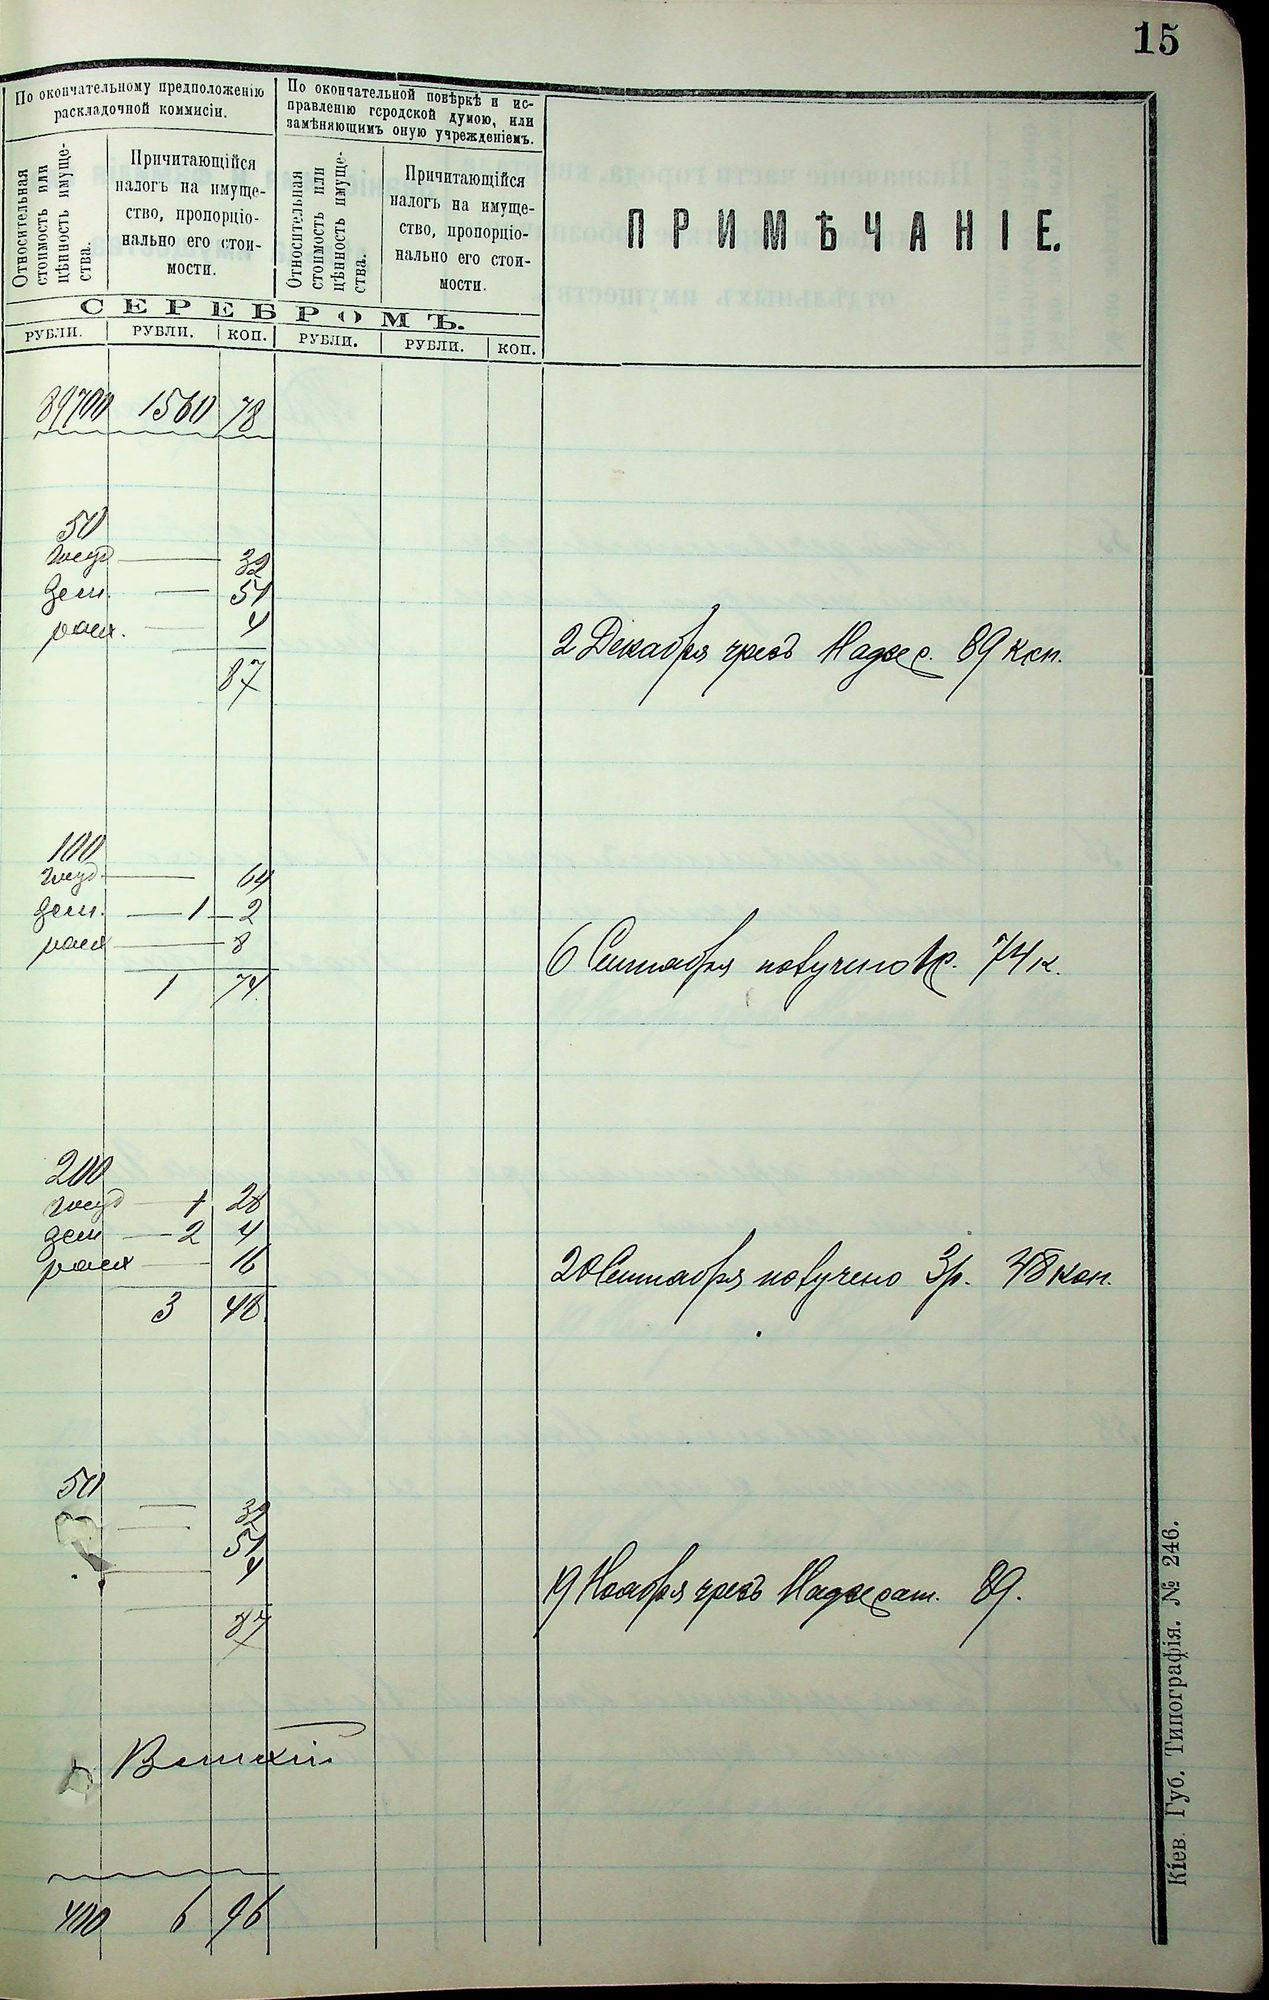 15
По окончательному предположенію
раскладочной коммисіи.
По окончательной повѣркѣ и ис-
правленію городской думою, или
замѣняющимъ оную учрежденіемъ.
Относительная
стоимость или
цѣнность имуще-
ства.
Причитающійся
налогъ на имуще-
ство, пропорціо-
нально его стои-
мости.
Относительная
стоимость или
цѣнность имуще-
ства.
Причитающійся
налогъ на имуще-
ство, пропорціо-
нально его стои-
мости.
ПРИМѢЧАНІЕ.
СЕРЕБРОМЪ.
РУБЛИ. РУБЛИ. КОП. РУБЛИ. РУБЛИ. КОП.
89700 1560 78
50
32
зем. — 51
4
87
2 Декабря чрезъ 89 коп.
100
64
зем. — 1 — 2
8
1 74
6 Сентября получено 1р. 74 к.
200
1 28
зем — 2 4
16
3 48
20 Сентября получено 3р. 48 коп.
50
32
51
4
87
19 Ноября чрезъ 89.
400 6 96
Кіев. Губ. Типографія. № 246.